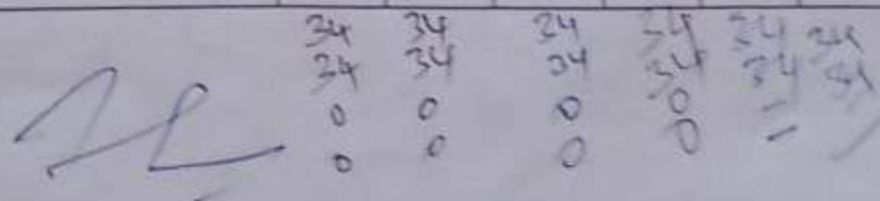 34 34 34 34 34 34
34 34 34 34 34 34
0 0 0 0 -
0 0 0 0 -